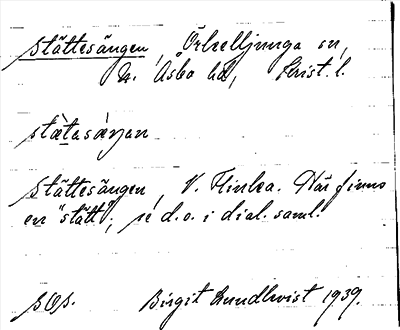 Stättesängen, Örkelljunga sn,
N. Åsbo hd, Krist. l.
stæ̀tasæ̀ŋan
Stättesängen, V. Flinka. Här finns
en "stätt", se d.o. i dial. saml.
SOS. Birgit Lundkvist 1939.